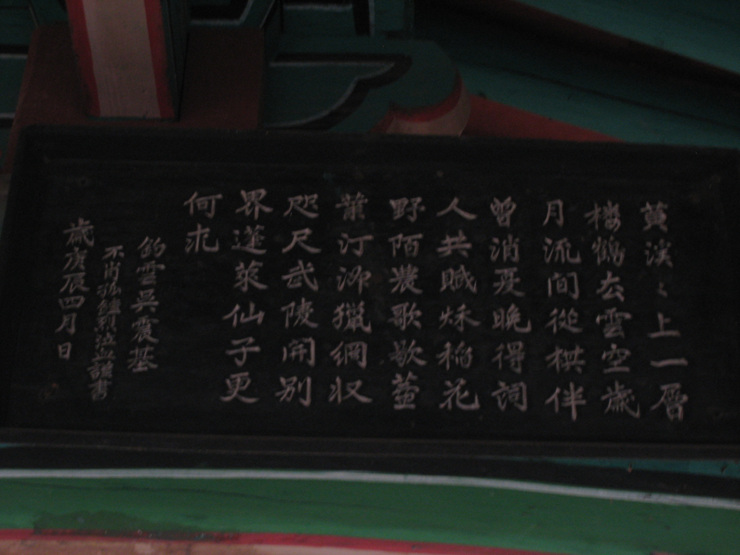 黃溪〻上一層
樓鶴去雲空歲
月流間從棋伴
曾消夏晚得詞
人共賦秌稻花
野陌農歌歇
汀洲獵網収
咫尺武陵開別
界蓬萊仙子更
何求
釣雲吳震基
不肖孫泣血謹書
歲庚辰四月日